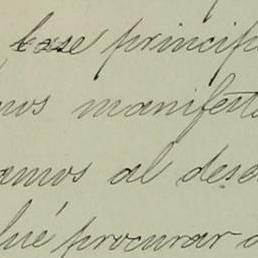 base principi
mos manifesta
amos al dese
qué procurar a